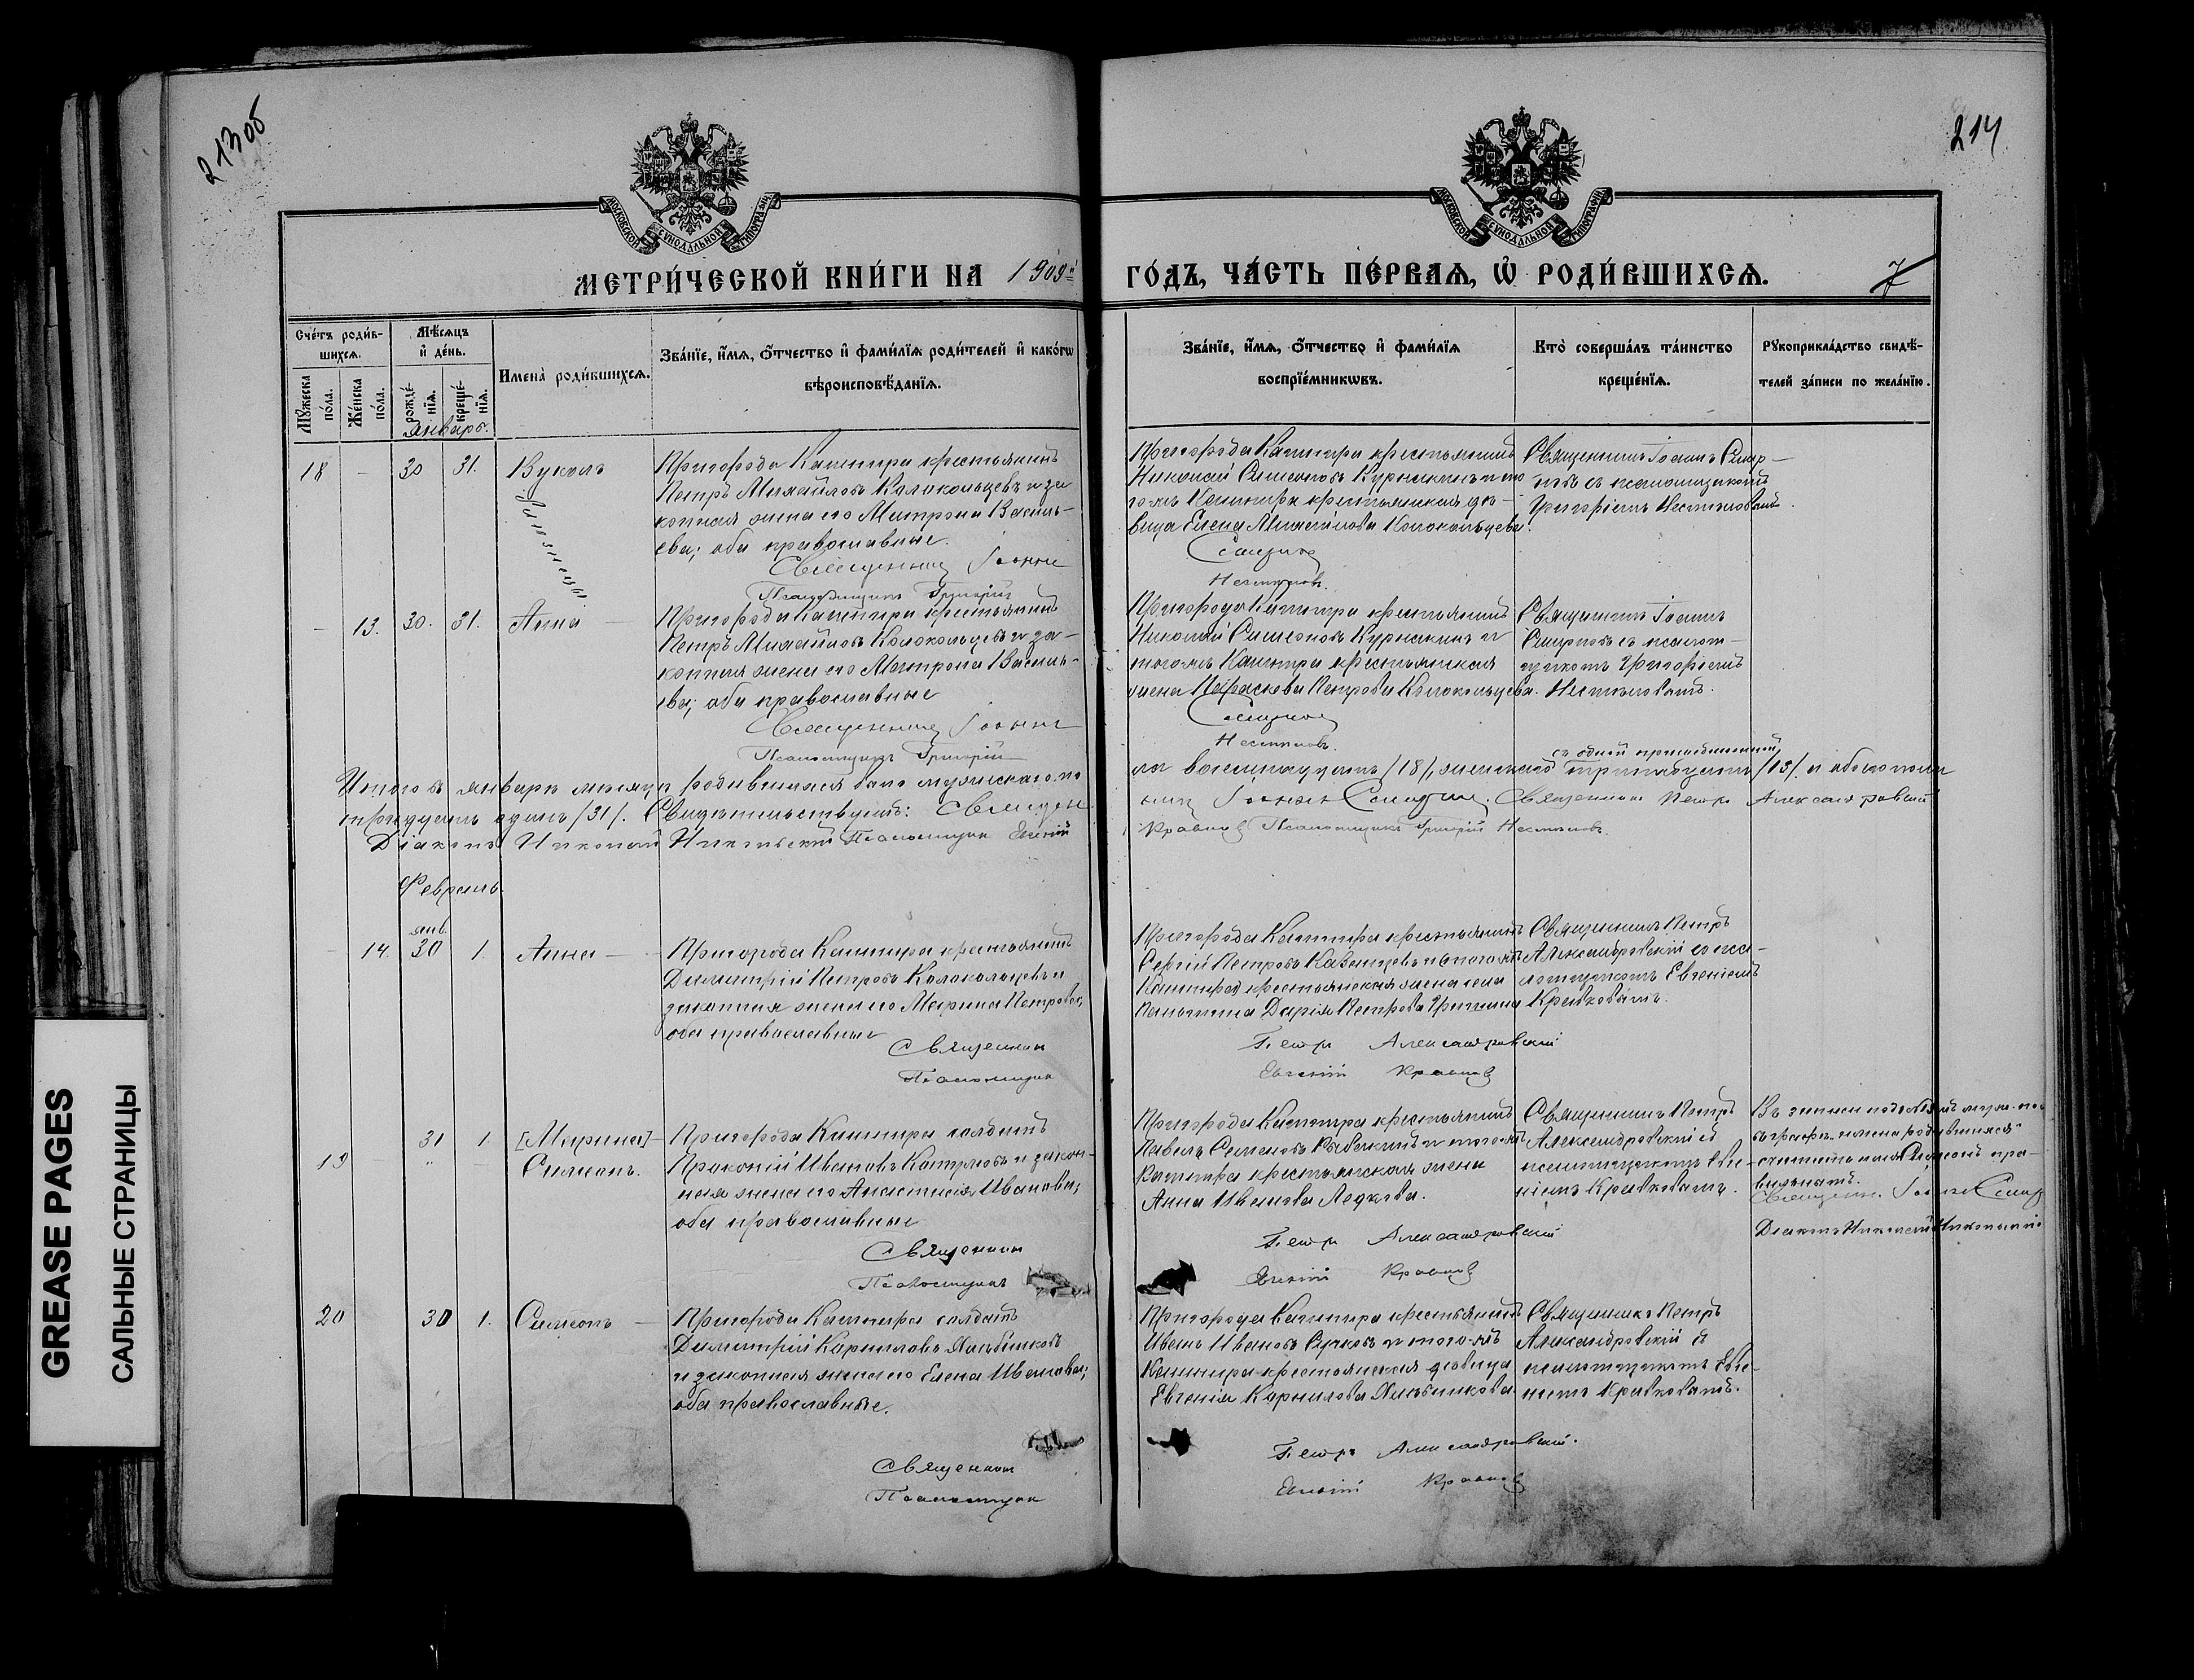 213об
214
МОСКОВСКОЙ СУНОДАЛЬНОЙ ТИПОГРАФІИ
МОСКОВСКОЙ СУНОДАЛЬНОЙ ТИПОГРАФІИ
МЕТРИ́ЧЕСКОЙ КНИ́ГИ НА 1909й
ГО́ДЪ, ЧА́СТЬ ПЕ́РВАЯ, Ѡ҆ РОДИ́ВШИХСѦ.
7
Сче́тъ роди́в-
шихсѧ.
Мꙋ́жеска по́ла.
Же́нска по́ла.
Мѣ́сѧцъ
и҆ де́нь.
рожде́-нїѧ.
креще́-нїѧ.
Имена̀ роди́вшихсѧ.
Зва́нїе, и҆́мѧ, ѻ҆́тчество и҆ фами́лїѧ роди́телей и҆ како́гѡ
вѣроисповѣ́данїѧ.
Зва́нїе, и҆́мѧ, ѻ҆́тчество и҆ фами́лїѧ
воспрїе́мникѡвъ.
Кто̀ соверша́лъ та́инство
креще́нїѧ.
Рꙋкоприкла́дство свидѣ́-
телей за́писи по жела́нїю.
Январь.
18 - 30 31. Вуколъ
Близнецы
Пригорода Кашпира крестьянинъ
Петръ Михайловъ Колокольцевъ и за
конная жена его Матрона Василь-
ева; оба православные.
Священникъ Іоаннъ
Псаломщикъ Григорій
Пригорода Кашпира крестьянинъ
Николай Симеоновъ Курнакинъ и то
го-жъ Кашпира крестьянская дѣ-
вица Елена Михайлова Колокольцева.
Смирнов
Нестеловъ.
Священникъ Іоаннъ Смир-
новъ съ псаломщикомъ
Григоріемъ
- 13. 30. 31. Анна -
Пригорода Кашпира крестьянинъ
Петръ Михайловъ Колокольцевъ и за-
конная жена его Матрона Василь-
ева; оба православные
Священникъ Іоаннъ
Псаломщикъ Григорій
Пригорода Кашпира крестьянинъ
Николай Симеоновъ Курнакинъ и
того-жъ Кашпира крестьянская
жена Параскева Петрова Колокольцева.
Смирнов
Священникъ Іоаннъ
Смирновъ съ псалом-
щикомъ Григоріемъ
Итого въ январѣ мѣсяцѣ родившихся было мужескаго по
ла восемнадцать /18/, женскаго тринадцать /13/. и обоего пола
съ одной
тридцать одинъ /31/. Свидѣтельствуютъ: Священ
никъ Іоаннъ Смирнов. Священникъ Петръ Александровскій
Діаконъ Николай Никольскій Псаломщикъ Евгеній
Кравков Псаломщикъ Григорій
Февраль.
янв.
- 14. 30 1 Анна -
Пригорода Кашпира крестьянинъ
Димитрій Петровъ Колокольцевъ и
законная жена его Марина Петрова;
оба православные
Священник
Псаломщик
Пригорода Кашпира крестьянинъ
Сергій Петровъ и того-жъ
Кашпира крестьянская жена села
Дарія Петрова
Петръ Александровскій
Евгеній Кравков
Священникъ Петръ
Александровскій со пса-
ломщикомъ Евгеніемъ
Кравковымъ.
31 1. [Марина] -
19 " - Симеонъ.
Пригорода Кашпира солдатъ
Прокопій Ивановъ и закон-
ная жена его Анастасія Иванова;
оба православные
Священник
Псаломщикъ
Пригорода Кашпира крестьянинъ
Павелъ Семеновъ и того-жъ
Кашпира крестьянская жена
Анна Иванова Ледкова.
Петръ Александровскій
Евгеній Кравков
Священникъ Петръ
Александровскій съ
псаломщикомъ Евге-
ніемъ Кравковымъ.
Въ записи подъ
въ графѣ „имена родившихся"
считать имя Симеонъ пра-
вильнымъ.
Священн. Іоаннъ Смир
Діаконъ Николай Никольскій
20 30 1. Симеонъ -
Пригорода Кашпира солдатъ
Димитрій Корниловъ Хлѣбниковъ
и законная жена его Елена Иванова;
оба православные.
Священник
Псаломщик
Пригорода Кашпира крестьянинъ
Иванъ Ивановъ и того-жъ
Кашпира крестьянская дѣвица
Евгенія Корнилова Хлѣбникова.
Петръ Александровскій.
Евгеній Кравков
Священникъ Петръ
Александровскій съ
псаломщикомъ Евге-
ніемъ Кравковымъ.
GREASE PAGES
САЛЬНЫЕ СТРАНИЦЫ